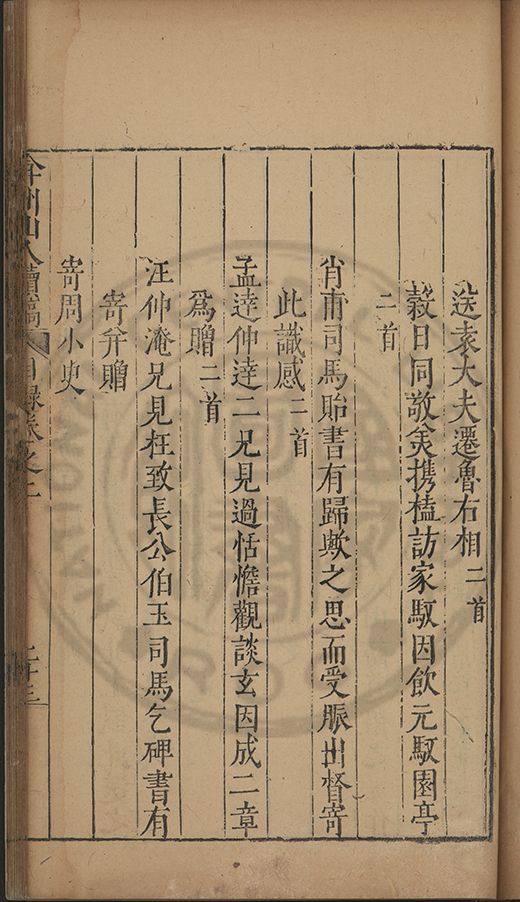 送袁大夫遷魯右相二首
穀日同敬美携榼訪家馭因飲元馭園亭
二首
肖甫司馬貽書有歸歟之思而受脤出督寄
此識感二首
孟逹仲逹二兄見過恬憺觀談玄因成二章
爲贈二首
汪仲淹兄見枉致長公伯玉司馬乞碑書有
寄并贈
寄周小史
弇州山人續稿 目録卷之二 二十三